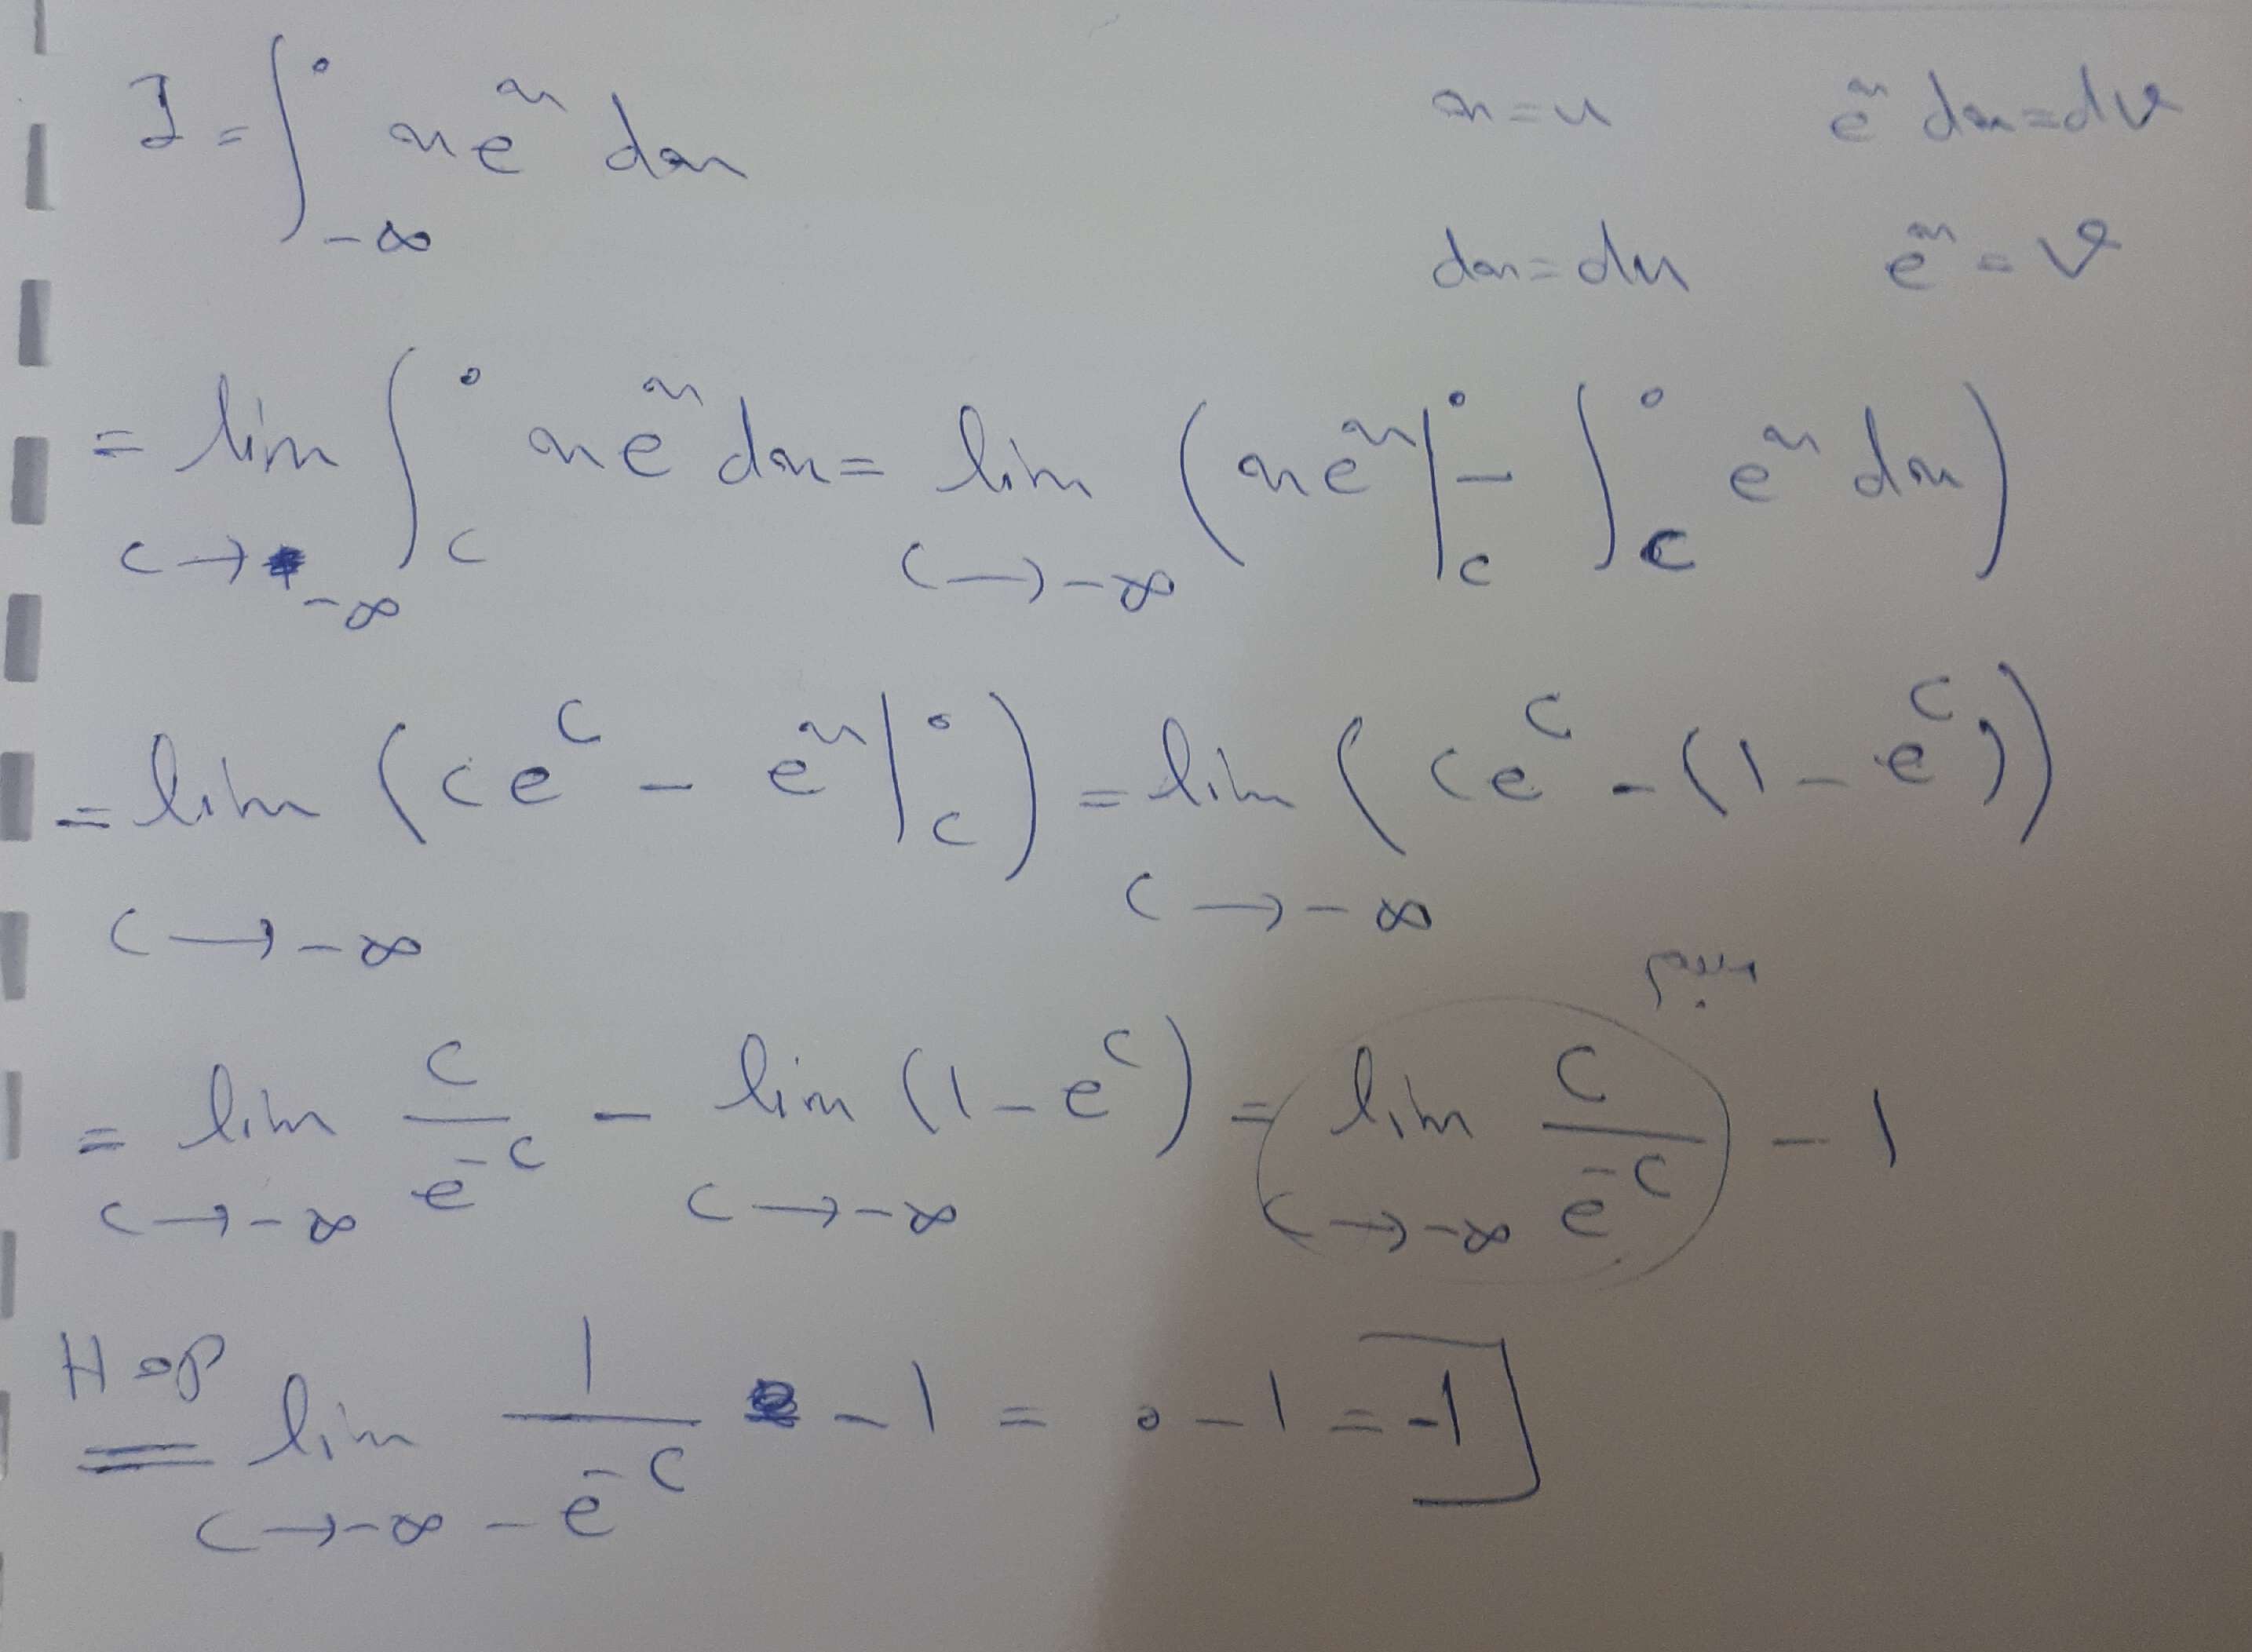 I = ∫_{-∞}^{0} x e^x dx    x = u    e^x dx = dv
dx = du    e^x = v
= lim_{c→-∞} ∫_{c}^{0} x e^x dx = lim_{c→-∞} ( x e^x |_{c}^{0} - ∫_{c}^{0} e^x dx )
= lim_{c→-∞} ( c e^c - e^x |_{c}^{0} ) = lim_{c→-∞} ( c e^c - (1 - e^c) )
مبهم
= lim_{c→-∞} c/e^{-c} - lim_{c→-∞} (1 - e^c) = lim_{c→-∞} c/e^{-c} - 1
Hop
= lim_{c→-∞} 1/(-e^{-c}) - 1 = 0 - 1 = -1